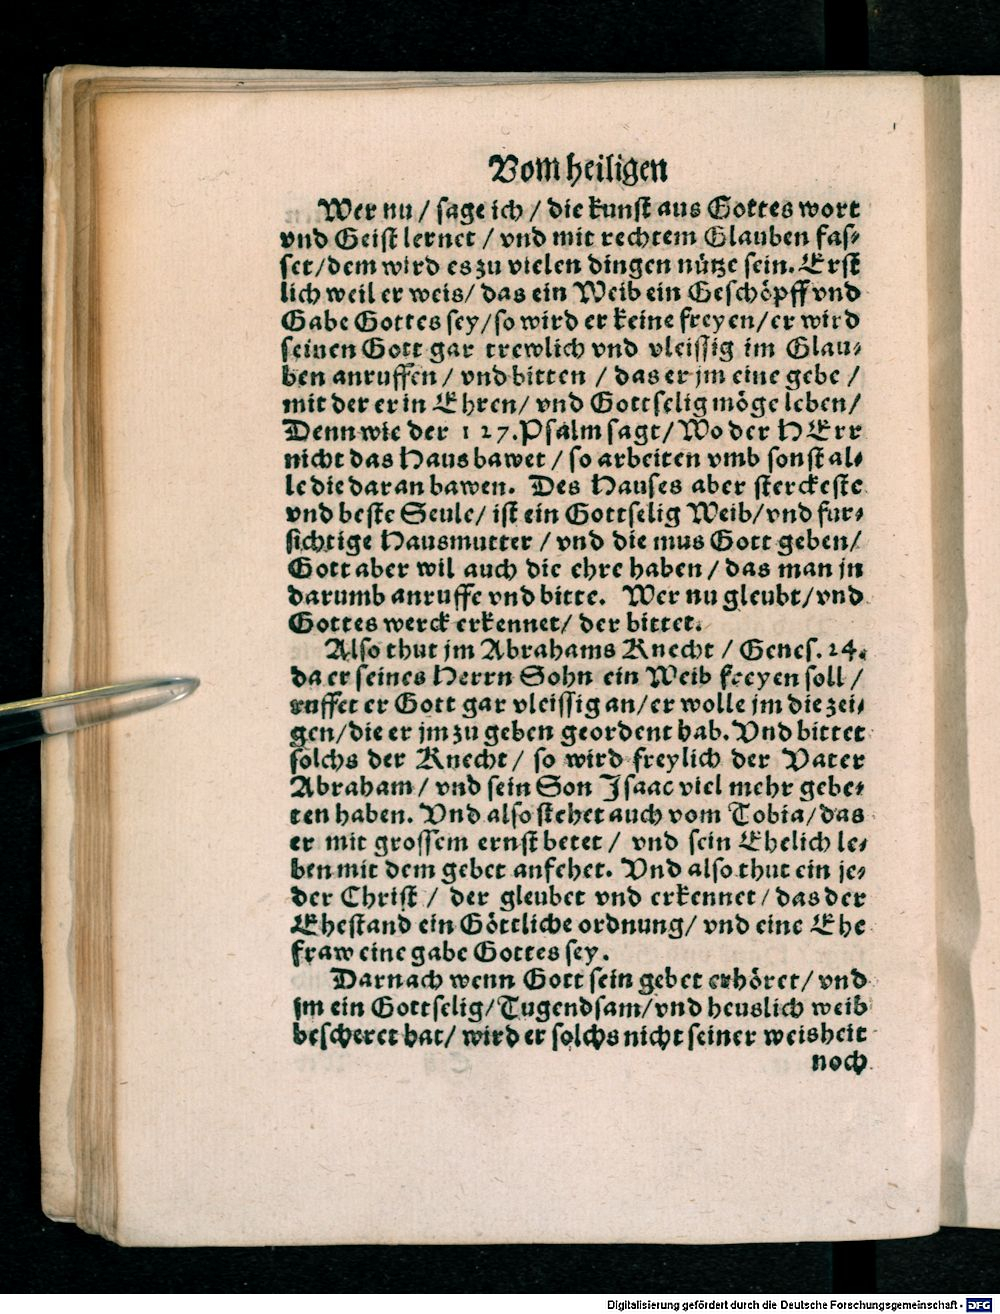 Vom heiligen
Wer nu / sage ich / die kunst aus Gottes wort
vnd Geist lernet / vnd mit rechtem Glauben fas-
set / dem wird es zu vielen dingen nütze sein. Erst
lich weil er weis / das ein Weib ein Geschöpff vnd
Gabe Gottes sey / so wird er keine freyen / er wird
seinen Gott gar trewlich vnd vleissig im Glau-
ben anruffen / vnd bitten / das er jm eine gebe /
mit der er in Ehren / vnd Gottselig möge leben /
Denn wie der 127. Psalm sagt / Wo der HErr
nicht das Haus bawet / so arbeiten vmb sonst al-
le die daran bawen. Des Hauses aber sterckeste
vnd beste Seule / ist ein Gottselig Weib / vnd fur-
sichtige Hausmutter / vnd die mus Gott geben /
Gott aber wil auch die ehre haben / das man jn
darumb anruffe vnd bitte. Wer nu gleubt / vnd
Gottes werck erkennet / der bittet.
Also thut jm Abrahams Knecht / Genes. 24.
da er seines Herrn Sohn ein Weib freyen soll /
ruffet er Gott gar vleissig an / er wolle jm die zei-
gen / die er jm zu geben geordent hab. Vnd bittet
solchs der Knecht / so wird freylich der Vater
Abraham / vnd sein Son Isaac viel mehr gebe-
ten haben. Vnd also stehet auch vom Tobia / das
er mit grossem ernst betet / vnd sein Ehelich le-
ben mit dem gebet anfehet. Vnd also thut ein je-
der Christ / der gleubet vnd erkennet / das der
Ehestand ein Göttliche ordnung / vnd eine Ehe
fraw eine gabe Gottes sey.
Darnach wenn Gott sein gebet erhöret / vnd
jm ein Gottselig / Tugendsam / vnd heuslich weib
bescheret hat / wird er solchs nicht seiner weisheit
noch
Digitalisierung gefördert durch die Deutsche Forschungsgemeinschaft - DFG